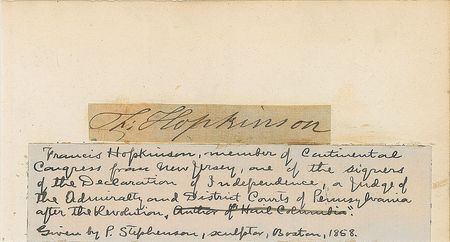 Fs. Hopkinson
Francis Hopkinson, member of Continental
Congress from New Jersey, one of the signers
of the Declaration of Independence, a judge of
the Admiralty and District Courts of Pennsylvania
after the Revolution, Author of "Hail Columbia".
Given by P. Stephenson, sculptor, Boston, 1858.